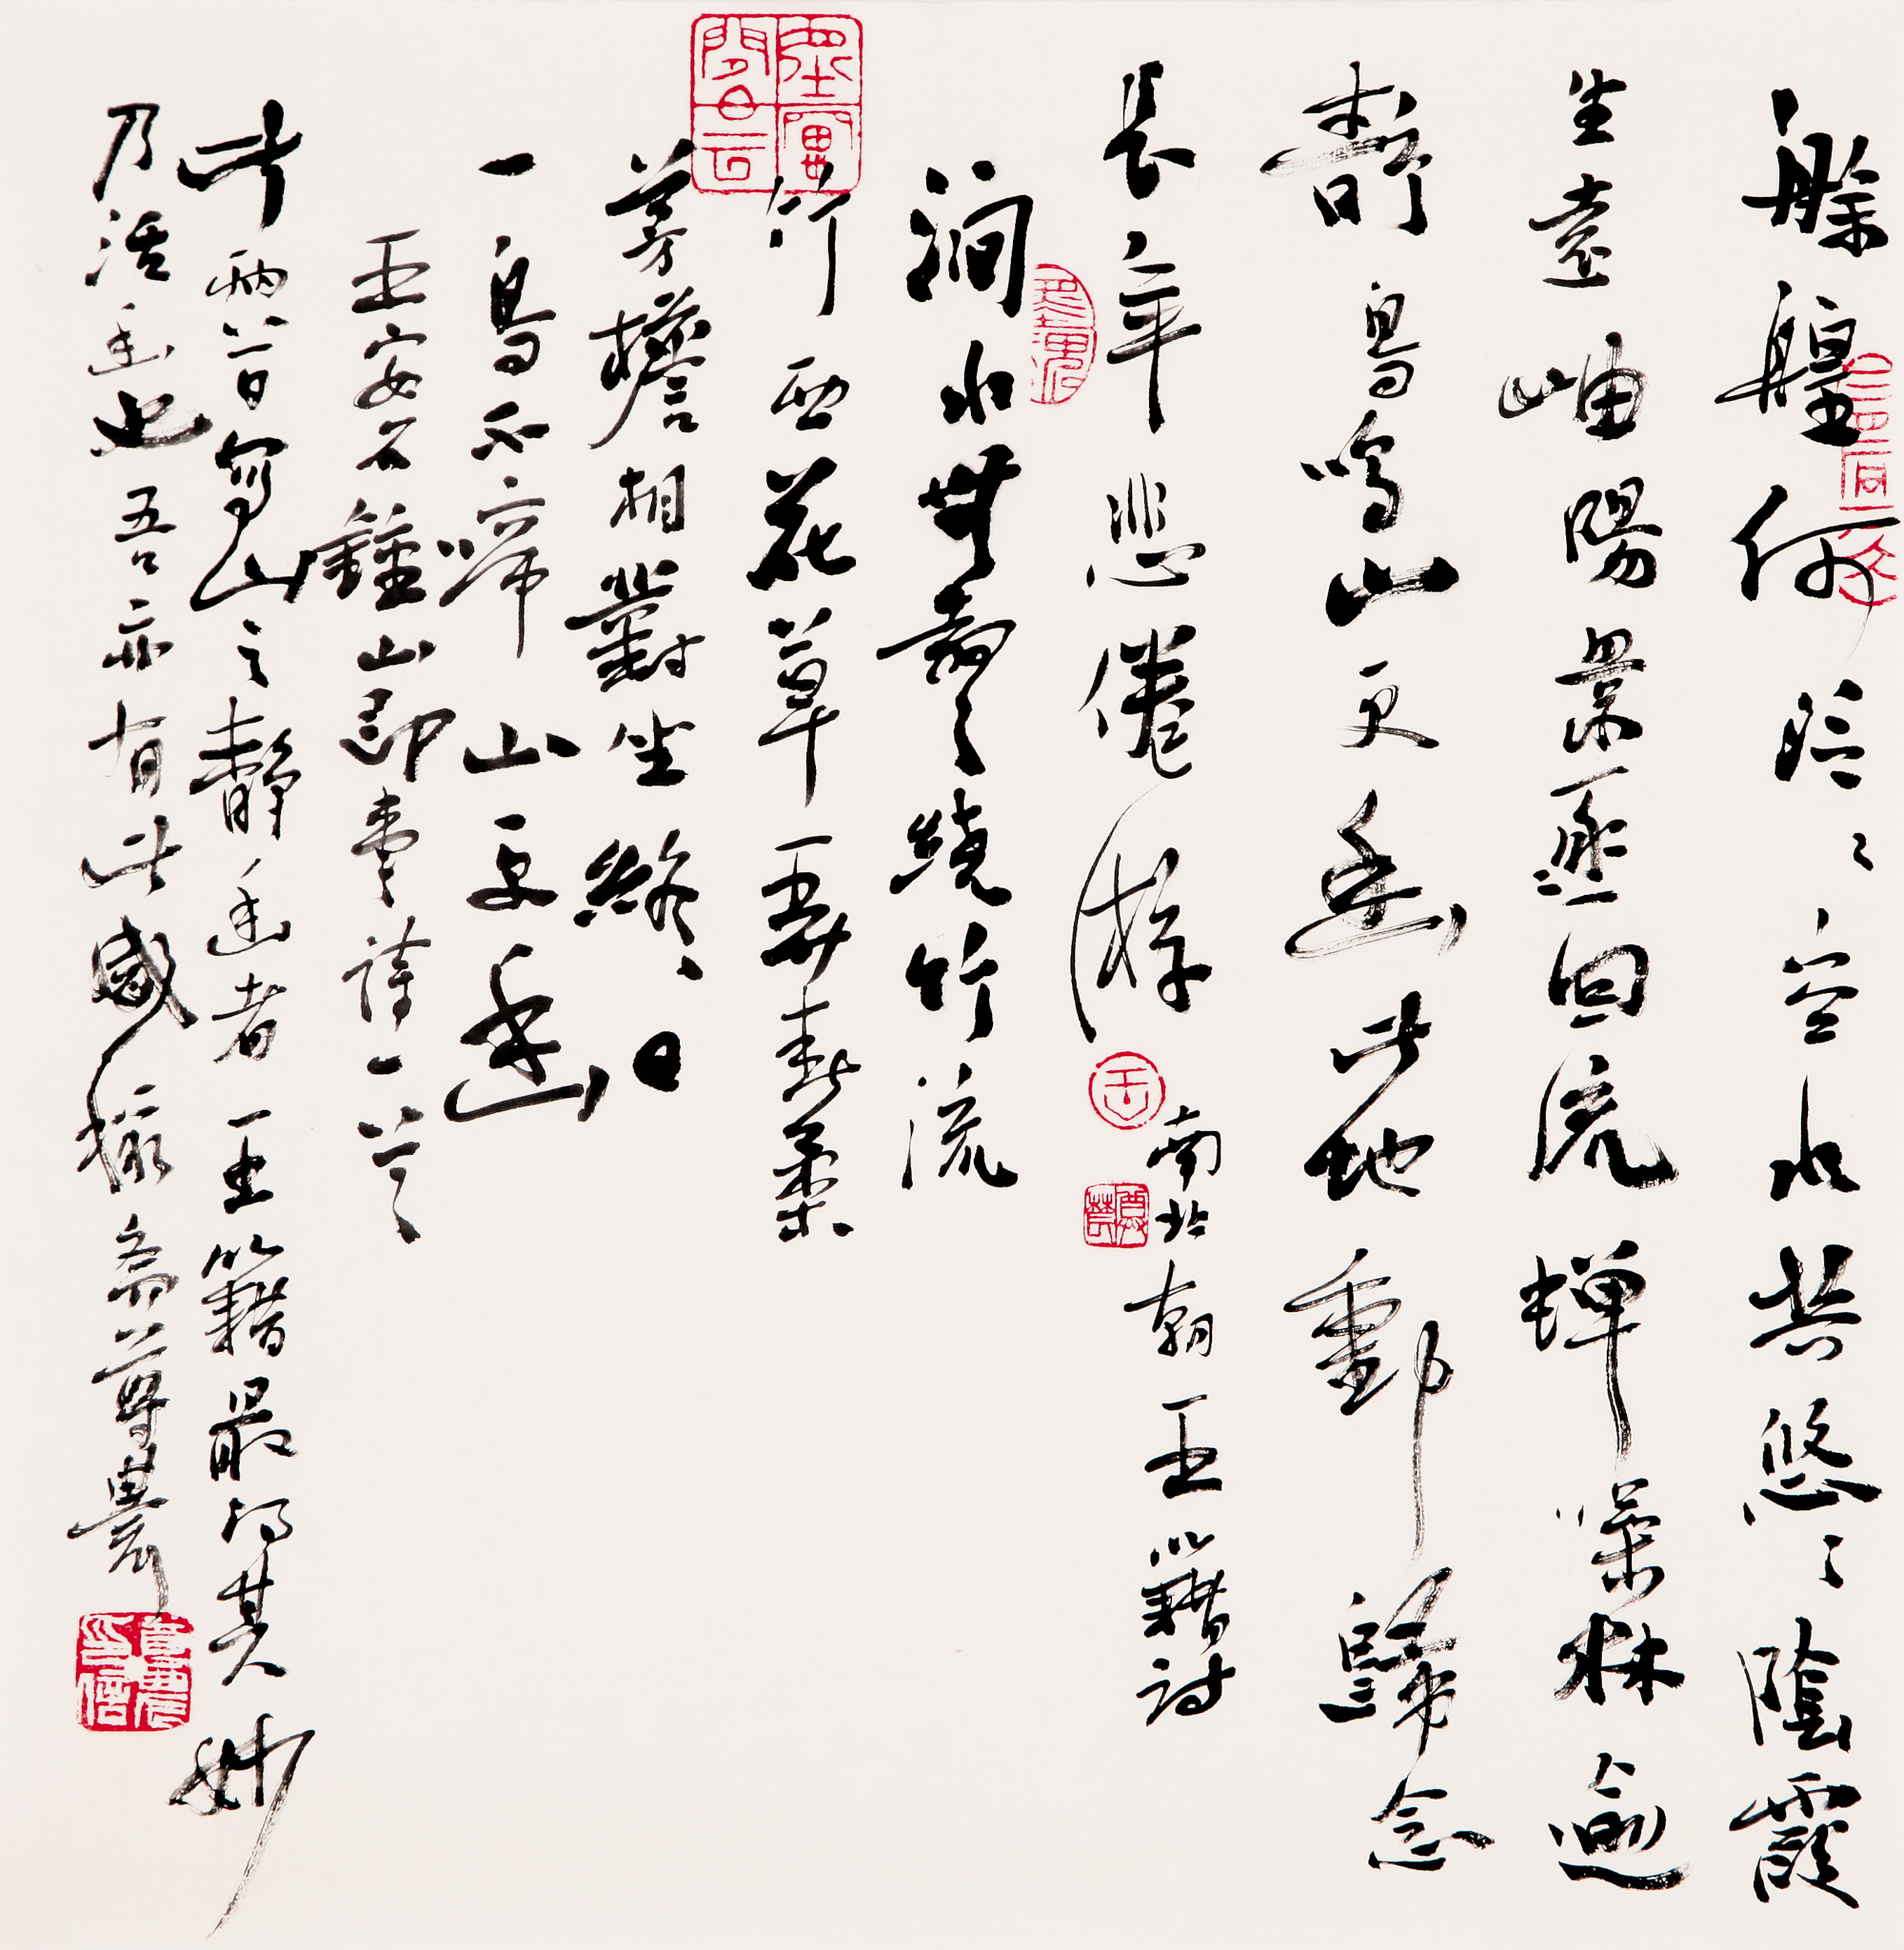 艅艎何泛〻空水共悠〻陰霞
生遠岫陽景逐回流蟬噪林逾
靜鳥鳴山更幽此地動歸念
長年悲倦游
南北朝王籍詩
澗水無聲繞竹流
竹西花草弄春柔
茅檐相對坐終日
一鳥不啼山更幽
王安石鍾山即事詩一首
此兩首寫山之靜幽者王籍最得其妙
乃活幽也吾亦有此感齋尊農